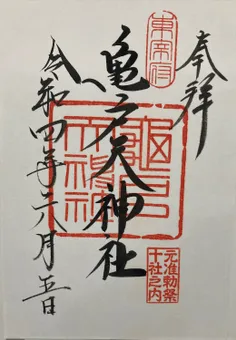 奉拝
東宰府
亀戸天神社
龜戸天神社
元准勅祭
十社之内
令和四年六月五日